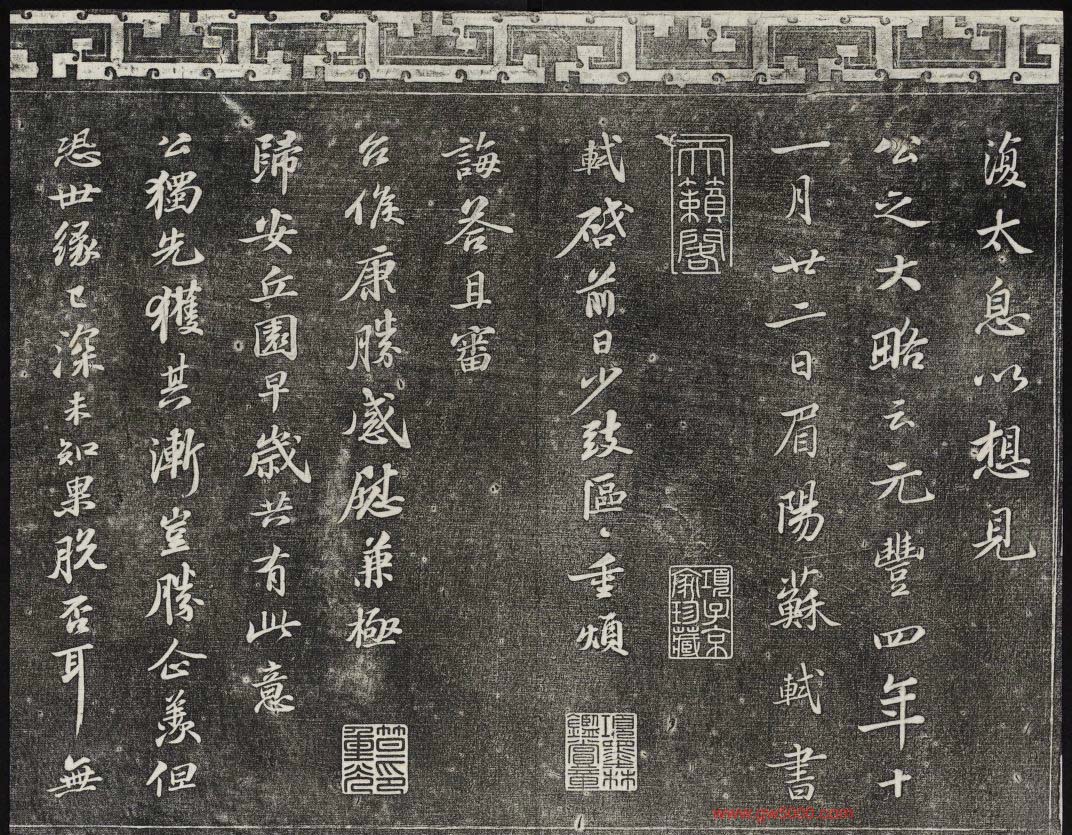 復太息以想見
公之大略云元豐四年十
一月廿二日眉陽蘇軾書
天籟閣
項子京家珍藏
軾啓前日少致區〻重煩
項墨林鑑賞章
誨答且審
台候康勝感慰兼極
笪重光印
歸安丘園早歲共有此意
公獨先獲其漸豈勝企羨但
恐世緣已深未知果脫否耳無